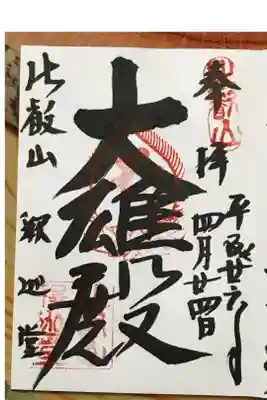 奉拝
平成廿六年
四月廿四日
大雄殿
比叡山
釈迦堂